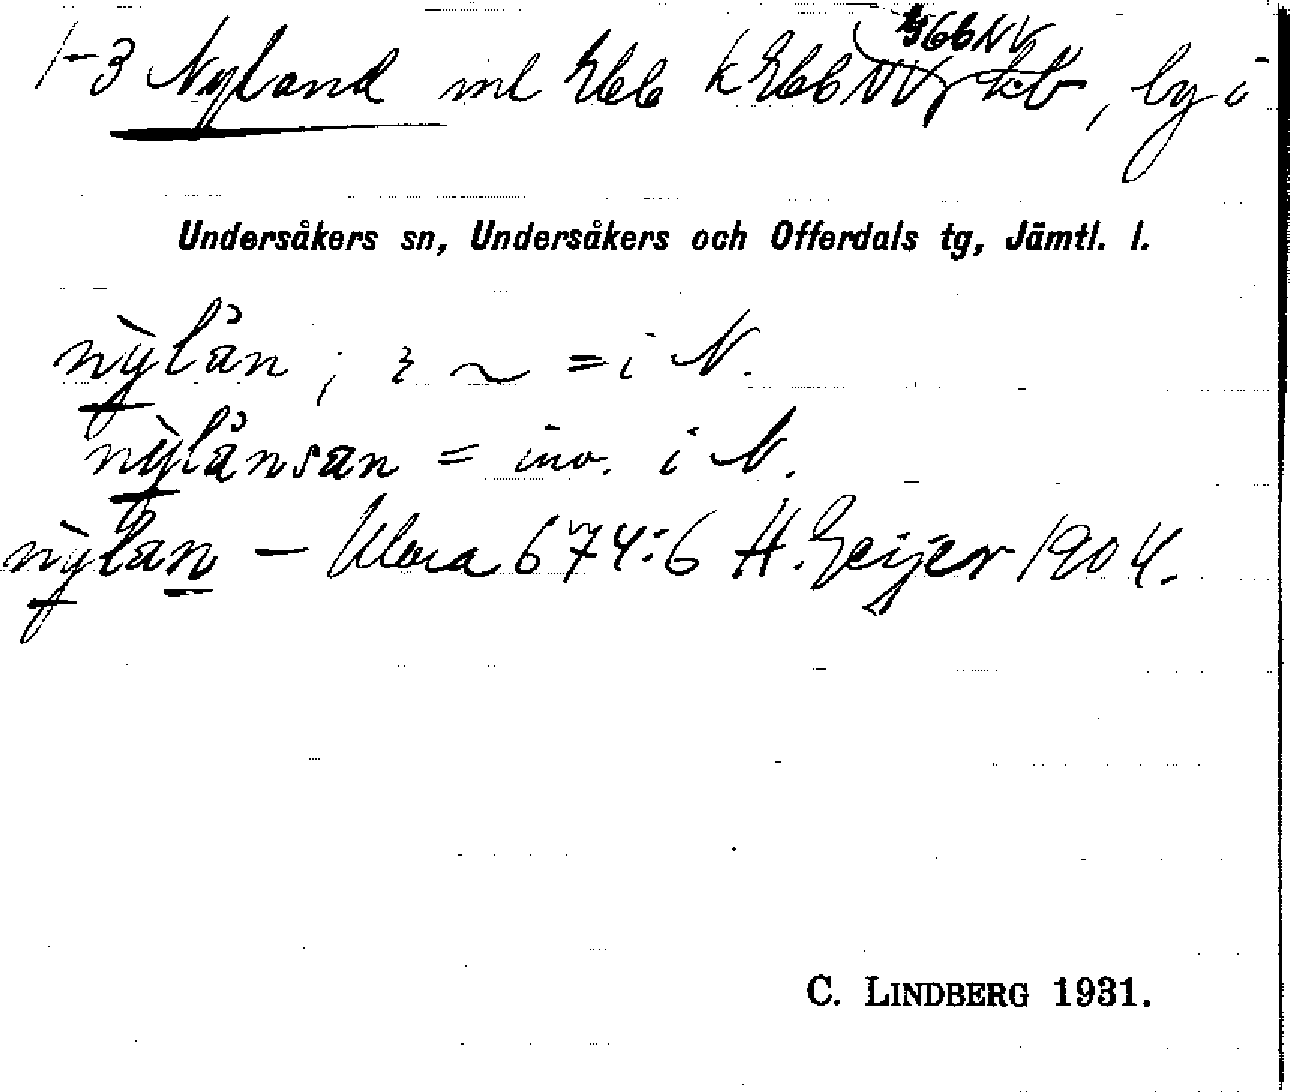 1-3 Nyland ml Ebb k Ebb NV, by i
Undersåkers sn, Undersåkers och Offerdals tg, Jämtl. l.
nỳlån ; ~ = i N.
nỳlånsan = inv. i N.
nỳlan — 674:6 H. Geijer 1904.
C. LINDBERG 1931.